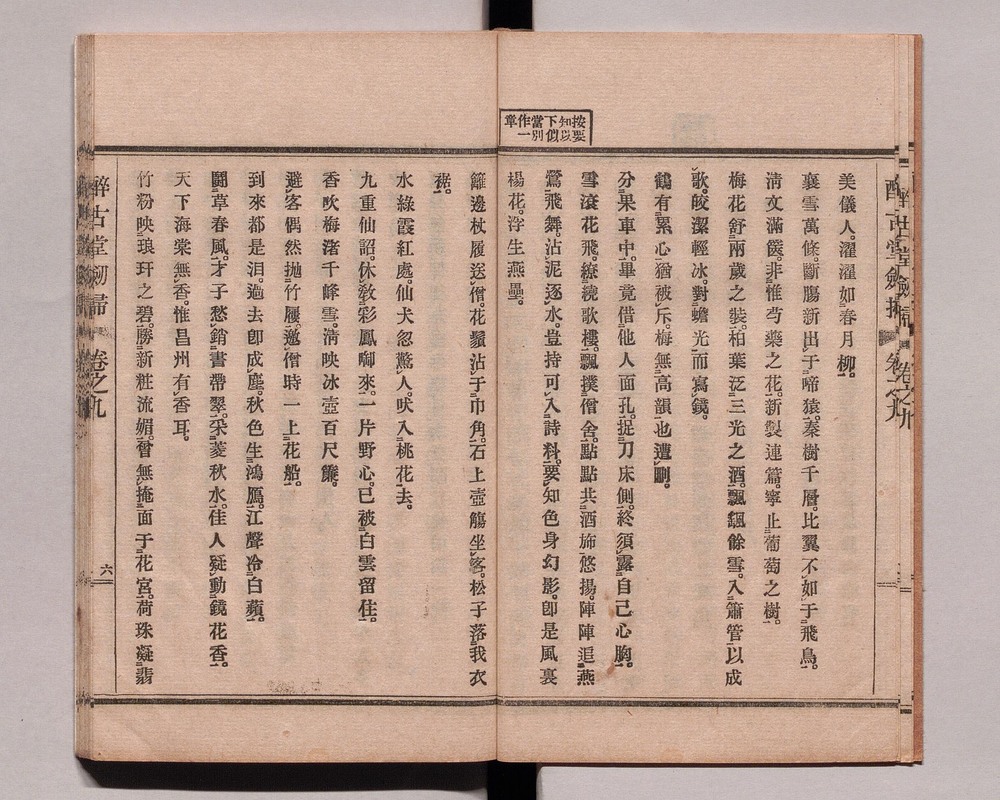 按要
知以
下似
當別
作一
章
美儀人。濯濯如春月柳。
襄雪萬條。斷腸新出于啼猿。秦樹千層。比翼不如于飛鳥。
淸文滿篋。非惟芍藥之花。新製連篇。寧止葡萄之樹。
梅花舒兩歲之裝。柏葉泛三光之酒。飄颻餘雪。入簫管以成
歌。皎潔輕冰。對蟾光而寫鏡。
鶴有累心猶被斥。梅無高韻也遭刪。
分果車中。畢竟借他人面孔。捉刀床側。終須露自己心胸。
雪滾花飛。繚繞歌樓。飄撲僧舍。點點共酒斾悠揚。陣陣追燕
鶯飛舞。沾泥逐水。豈持可入詩料。要知色身幻影。卽是風裏
楊花。浮生燕壘。
籬邊杖履送僧。花鬚沾于巾角。石上壺觴坐客。松子落我衣
裾。
水綠霞紅處。仙犬忽驚人。吠入桃花去。
九重仙詔。休敎彩鳳啣來。一片野心。已被白雲留住。
香吹梅渚千峰雪。淸映冰壺百尺簾。
避客偶然拋竹履。邀僧時一上花船。
到來都是淚。過去卽成塵。秋色生鴻雁。江聲冷白蘋。
鬪草春風。才子愁銷書帶翠。采菱秋水。佳人疑動鏡花香。
天下海棠無香。惟昌州有香耳。
竹粉映琅玕之碧。勝新粧流媚。曾無掩面于花宮。荷珠凝翡
醉古堂劒掃
卷之九
六